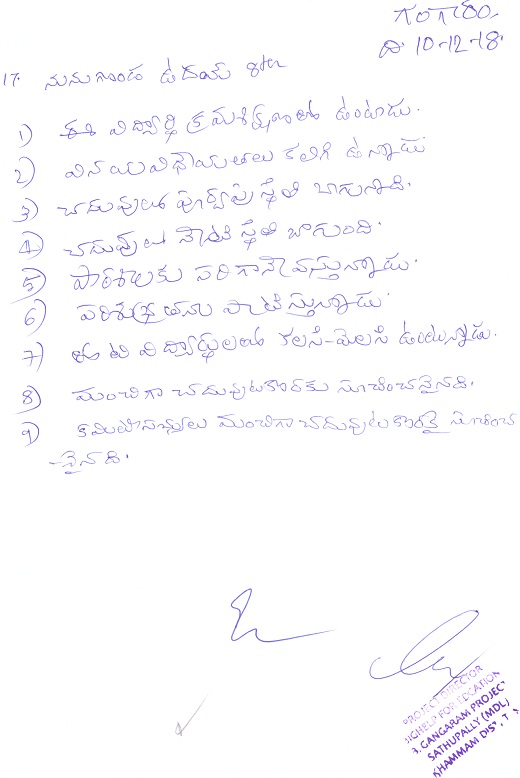 గంగారం,
ది. 10-12-18.
17. నునుగొండ ఉదయ్ 8th
1) ఈ విద్యార్థి క్రమశిక్షణలో ఉంటాడు.
2) వినయవిధేయతలు కలిగి ఉన్నాడు
3) చదువులో పూర్వపు స్థితి బాగున్నది.
4) చదువులో నేటి స్థితి బాగుంది.
5) పాఠశాలకు సరిగానే వస్తున్నాడు.
6) పరిశుభ్రతను పాటిస్తున్నాడు
7) తోటి విద్యార్థులతో కలసి-మెలసి ఉంటున్నాడు.
8) మంచిగా చదువుటకొరకు సూచించనైనది.
9) కమిటిసభ్యులు మంచిగా చదువుటకొరకై సూచించ
-నైనది.
PROJECT DIRECTOR
FOR EDCATION
GANGARAM PROJECT
SATHUPALLY (MDL)
KHAMMAM DIST, T.S